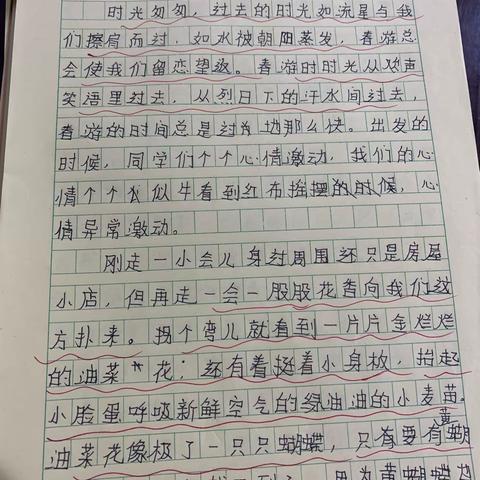 时光匆匆，过去的时光如流星与我
们擦肩而过，如水被朝阳蒸发，春游总
会使我们留恋望返。春游时时光从欢声
笑语里过去，从烈日下的汗水间过去，
春游的时间总是过为地那么快。出发的
时候，同学们个个心情激动，我们的心
情个个似牛看到红布摇摆的时候，心
情异常激动。
刚走一小会儿身过周围还只是房屋
小店，但再走一会一股股花香向我们这
方扑来。拐个弯儿就看到一片片金烂烂
的油菜花；还有着挺着小身板，抬起
小脸蛋呼吸新鲜空气的绿油油的小麦苗。
油菜花像极了一只只蝴蝶，只有要有黄蝴
因为黄蝴蝶